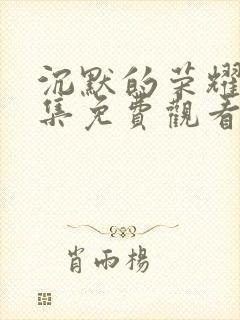 沉默的荣耀
集免費觀看
肖雨楊